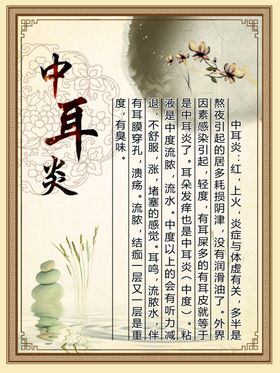 中耳炎
中耳炎：红，上火，炎症与体虚有关，多半是
熬夜引起的居多耗损阴津，没有润滑油了。外界
因素感染引起，轻度，有耳屎多的有耳皮就等于
是中耳炎了。耳朵发痒也是中耳炎（中度）。粘
液是中度流脓，流水。中度以上的会有听力减
退，不舒服，涨，堵塞的感觉。耳鸣，流脓水，伴
有耳膜穿孔，溃疡。流脓，结痂一层又一层是重
度，有臭味。